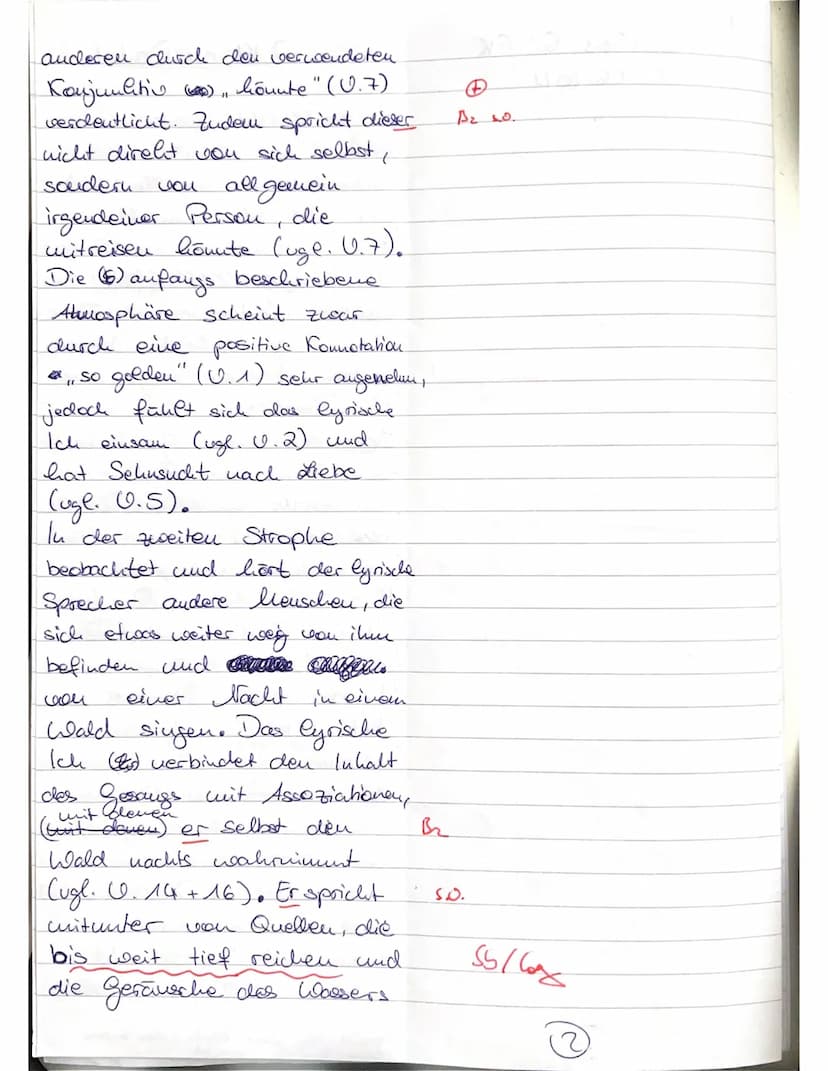 anderen durch den verwendeten
Konjunktiv „könnte" (V.7)
verdeutlicht. Zudem spricht dieser
nicht direkt von sich selbst,
sondern von allgemein
irgendeiner Person, die
mitreisen könnte (vgl. V.7).
Die anfangs beschriebene
Atmosphäre scheint zwar
durch eine positive Konnotation
„so golden" (V.1) sehr angenehm,
jedoch fühlt sich das lyrische
Ich einsam (vgl. V.2) und
hat Sehnsucht nach Liebe
(vgl. V.5).
In der zweiten Strophe
beobachtet und hört der lyrische
Sprecher andere Menschen, die
sich etwas weiter weg von ihm
befinden und
von einer Nacht in einem
Wald singen. Das lyrische
Ich verbindet den Inhalt
des Gesangs mit Assoziationen,
mit denen
(mit denen) er selbst den
Wald nachts wahrnimmt
(vgl. V. 14 + 16). Er spricht
mitunter von Quellen, die
bis weit tief reichen und
die Geräusche des Wassers
+
Bz s.o.
Bz
s.o.
Sb/Log
2